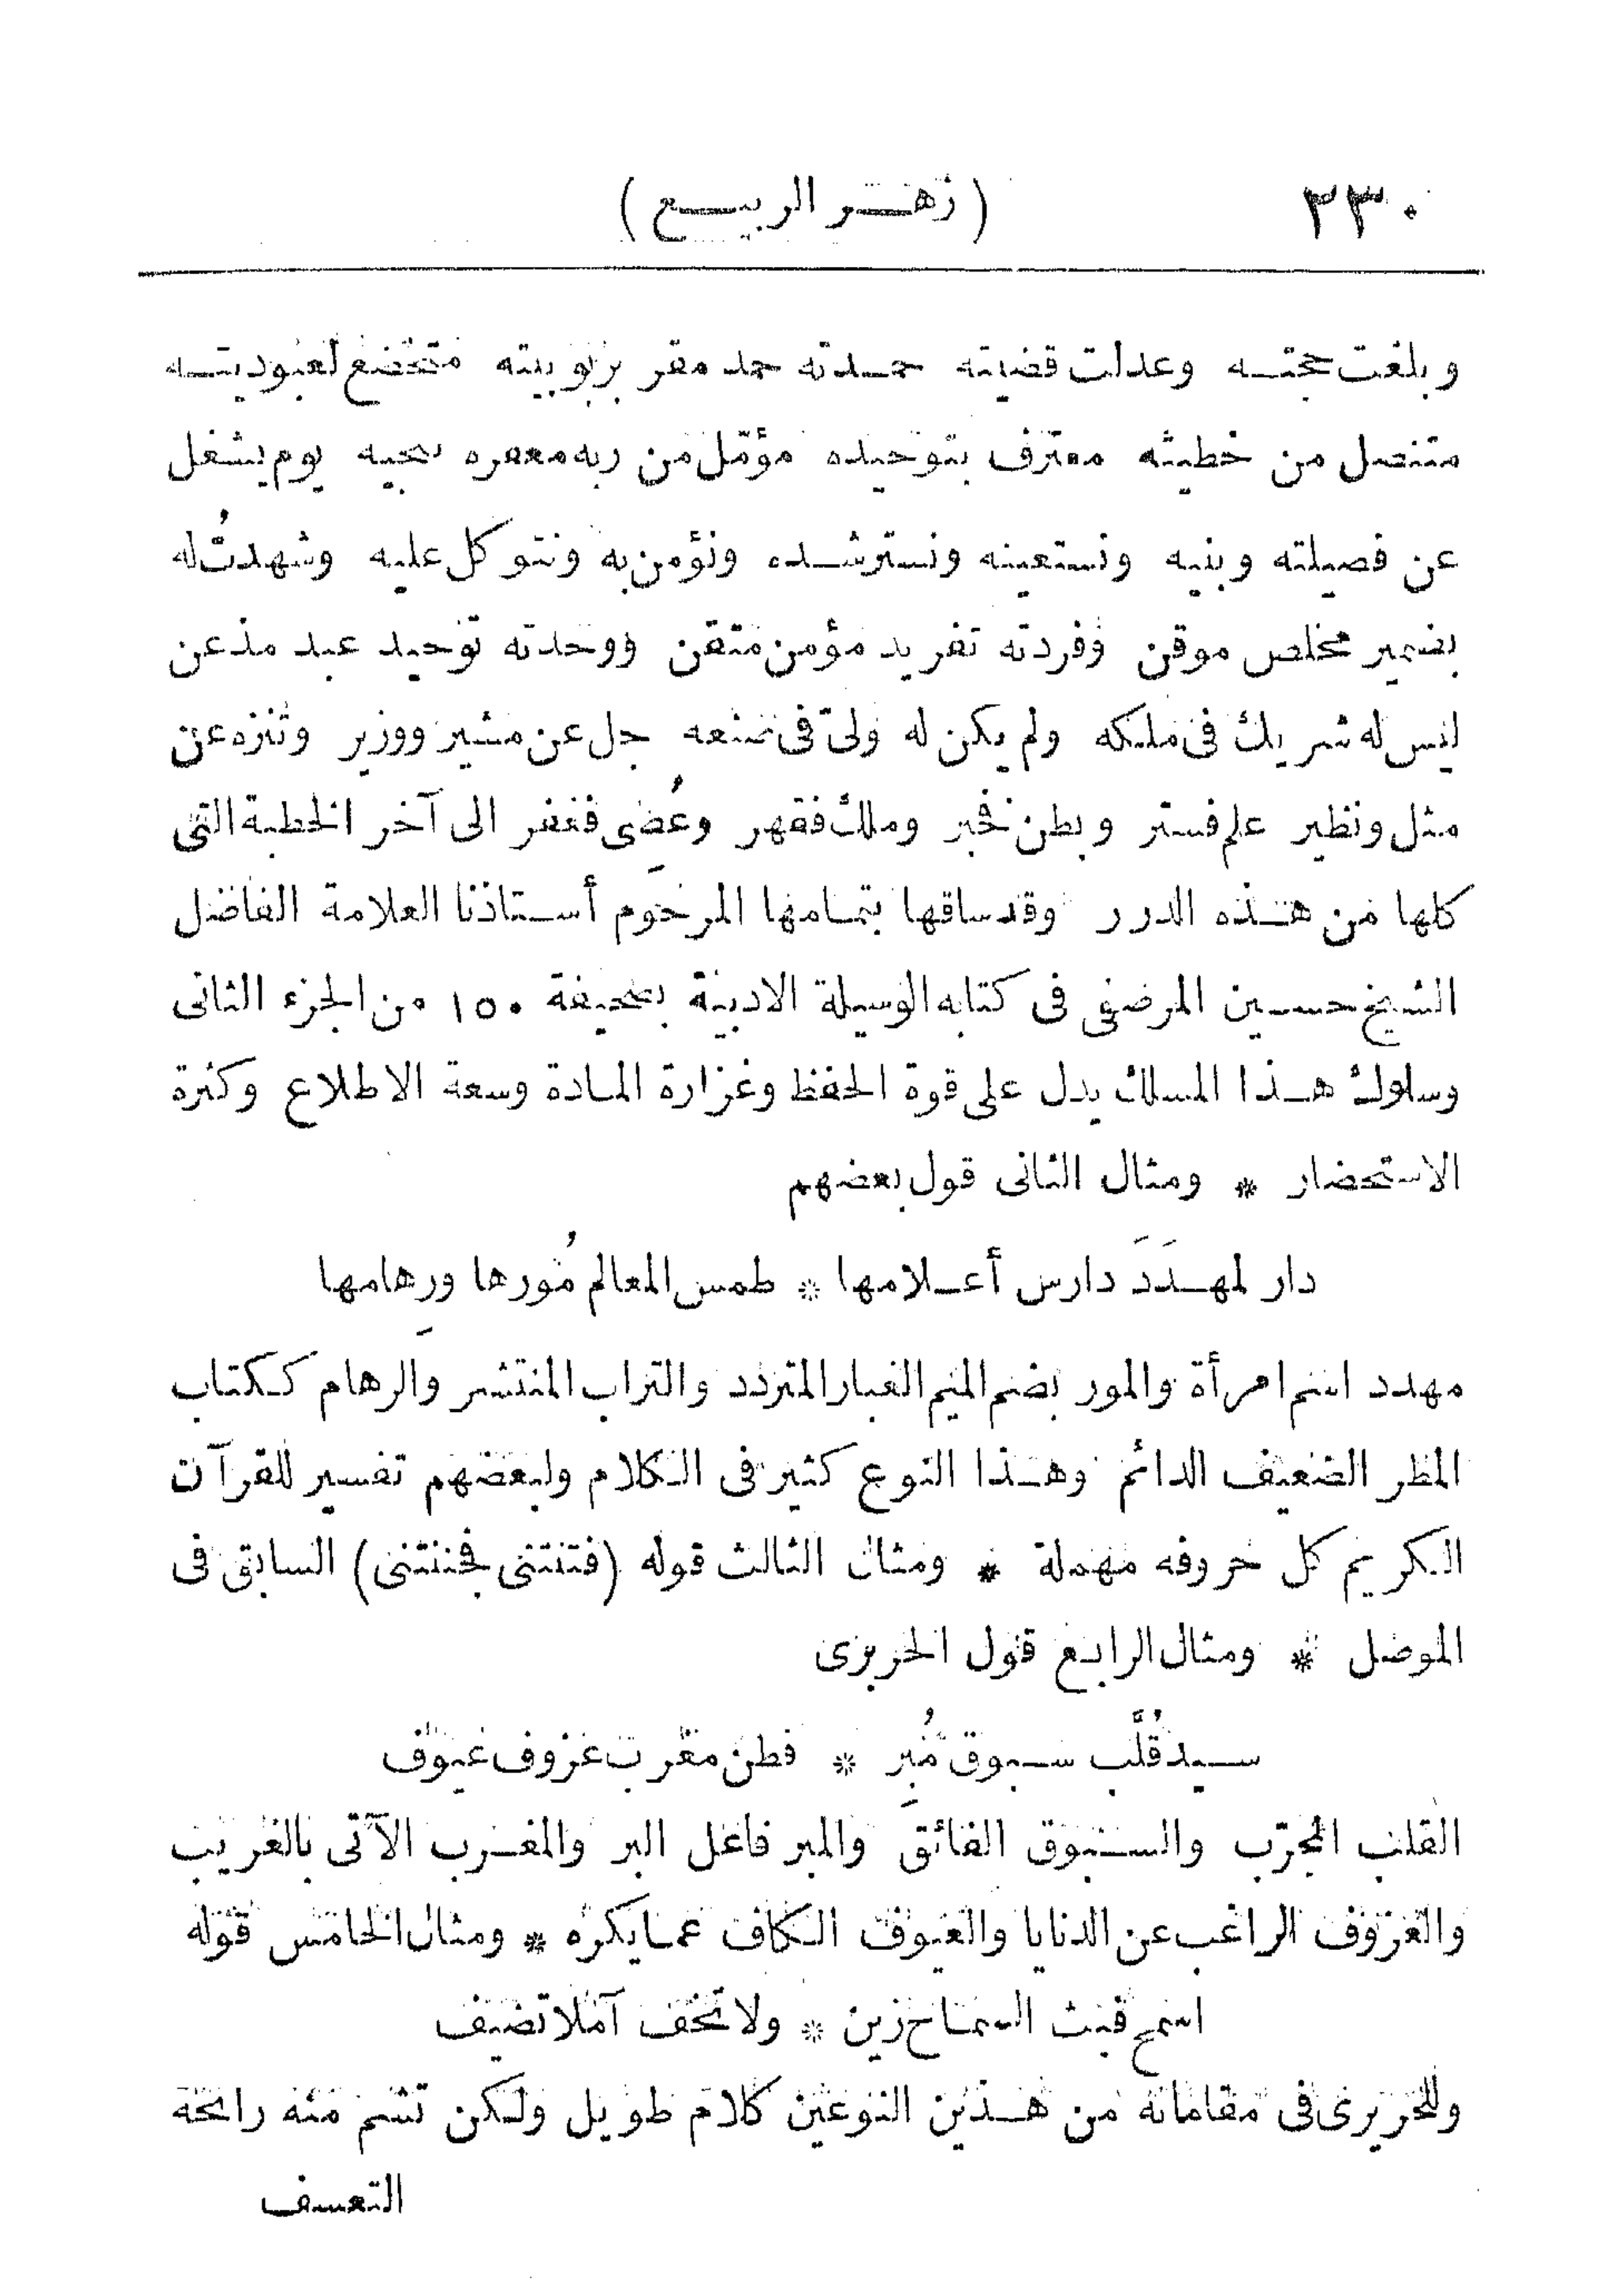 ٢٣٠ (زهر الربيع)
وبلغت حجته وعدلت قضيته حمدته حمد مقر بربوبيته متخضع لعبوديته
متنصل من خطيئته معترف بتوحيده مؤمّل من ربه مغفرة تنجيه يوم يشغل
عن فصيلته وبنيه ونستعينه ونسترشده ونؤمن به ونتوكل عليه وشهدتُ له
بضمير مخلص موقن وفردته تفريد مؤمن متقن ووحدته توحيد عبد مذعن
ليس له شريك فى ملكه ولم يكن له ولىّ فى صنعه جل عن مشير ووزير وتنزه عن
مثل ونظير علم فستر وبطن فخبر وملك فقهر وعُصِى فغفر الى آخر الخطبة التى
كلها من هذه الدرر وقد ساقها بتمامها المرحوم أستاذنا العلامة الفاضل
الشيخ حسين المرصفى فى كتابه الوسيلة الادبية بصحيفة ١٥٠ من الجزء الثانى
وسلوك هذا المسلك يدل على قوة الحفظ وغزارة المادة وسعة الاطلاع وكثرة
الاستحضار * ومثال الثانى قول بعضهم
دار لمهدَدَ دارس أعلامها * طمس المعالم مُورها ورِهامها
مهدد اسم امرأة والمور بضم الميم الغبار المتردد والتراب المنتشر والرهام ككتاب
المطر الضعيف الدائم وهذا النوع كثير فى الكلام ولبعضهم تفسير للقرآن
الكريم كل حروفه مهملة * ومثال الثالث قوله (فتنتنى فجننتنى) السابق فى
الموصل * ومثال الرابع قول الحريرى
سيد قُلَّب سبوق مُبِر * فطن مغرب عزوف عيوف
القلب المجرّب والسبوق الفائق والمبر فاعل البر والمغرب الآتى بالغريب
والعزوف الراغب عن الدنايا والعيوف الكاف عما يكره * ومثال الخامس قوله
اسمح فبث السماح زين * ولا تخف آملا تضيف
وللحريرى فى مقاماته من هذين النوعين كلام طويل ولكن تشم منه رائحة
التعسف